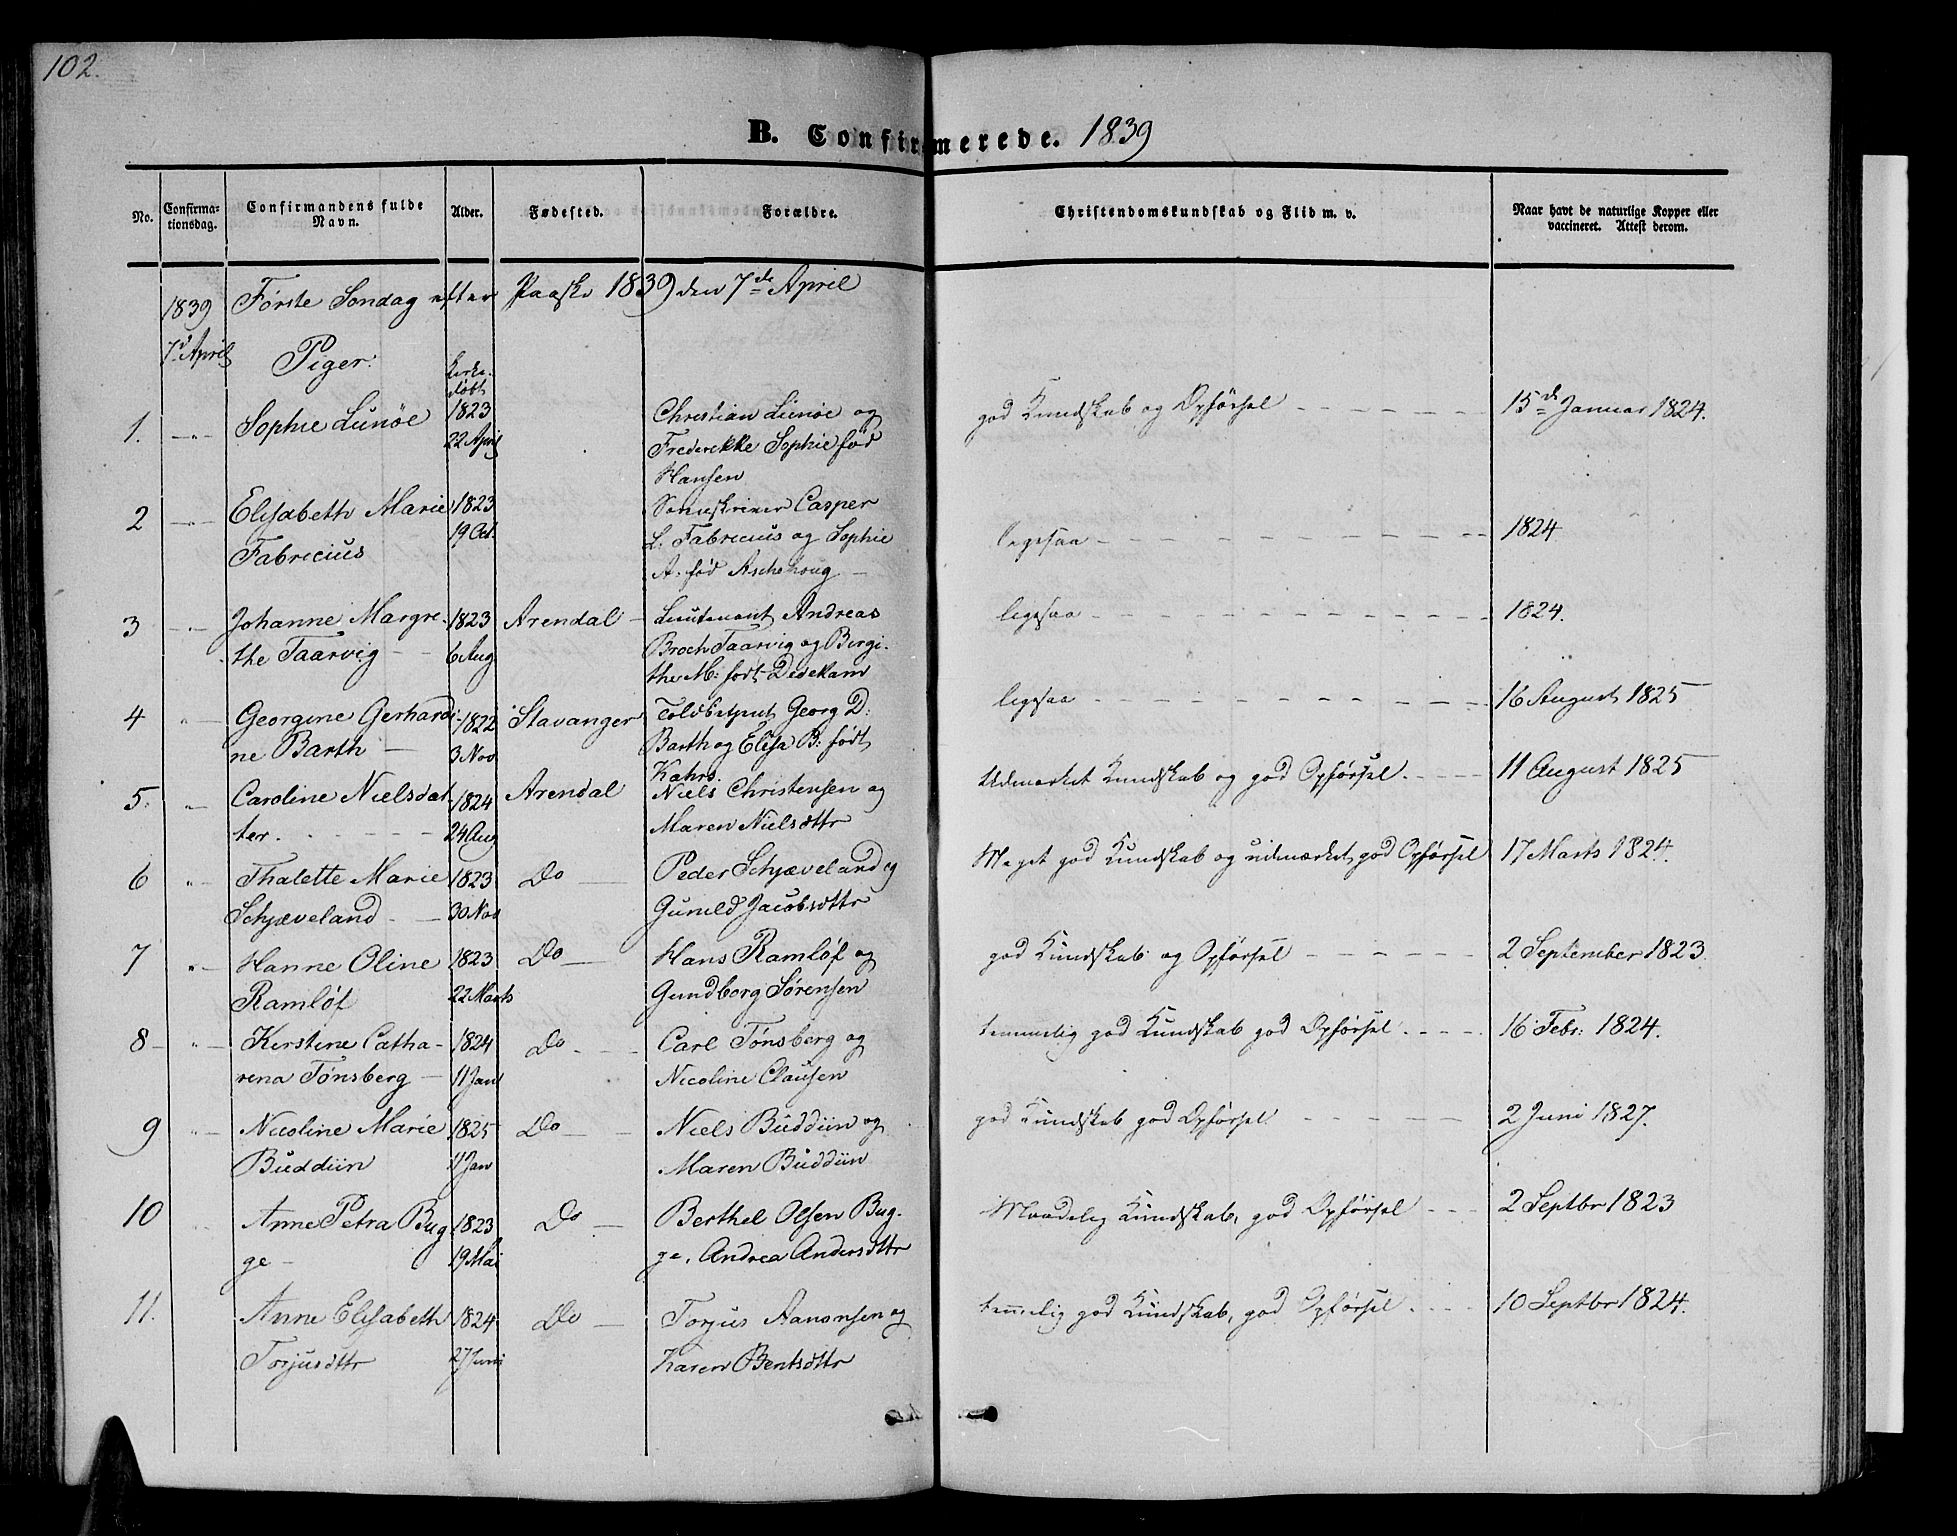 102.
B. Confirmerede. 1839
No.
Confirma-
tionsdag.
Confirmandens fulde
Navn.
Alder.
Fødested.
Forældre.
Christendomskundskab og Flid m. v.
Naar havt de naturlige Kopper eller
vaccineret. Attest derom.
1839 Første Søndag efter Paaske 1839 den 7de April
7de April
Piger:
Kirke-
døbt
1. -"- Sophie Lunöe 1823 Christian Lunöe og god Kundskab og Opførsel 15de Januar 1824.
22 April Frederikke Sophie fød
Hansen
2 -"- Elisabeth Marie 1823 Casper ligesaa 1824
Fabricius 19 Oct. L. Fabricius og Sophie
A. fød Aschehoug
3 -"- Johanne Margre- 1823 Arendal Lieutenant Andreas ligesaa 1824.
the Taarvig 6 Aug Broch Taarvig og Birgi-
the M: født Dedekam
4 " Georgine Gerhardi- 1822 Stavanger Toldbetjent Georg D: ligesaa 16 August 1825
ne Barth 3 Nov Barth og Elisa B: født
Kahrs.
5. " Caroline Nielsdat- 1824 Arendal Niels Christensen og Udmærket Kundskab og god Opførsel. 11 August 1825
ter. 24 Aug Maren Nielsdttr
6 " Thalette Marie 1823 Do Peder Schjæveland og Meget god Kundskab og udmærket god Opførsel 17 Marts 1824.
Schjæveland 30 Nov Gunild Jacobsdttr
7 " Hanne Oline 1823 Do Hans Ramløf og god Kundskab og Opførsel 2 September 1823.
Ramløf 22 Marts Gundborg Sørensen
8 " Kirstine Catha- 1824 Do Carl Tønsberg og temmelig god Kundskab god Opførsel 16 Febr: 1824.
rena Tønsberg 11 Jan Nicoline Clausen
9 " Nicoline Marie 1825 Do Niels Buddün og god Kundskab god Opførsel 2 Juni 1827.
Buddün 11 Jan Maren Buddün
10 " Anne Petra Bug 1823 Do Berthel Olsen Bug- Maadelig Kundskab, god Opførsel 2 Septbr 1823
ge 19 Mai ge, Andrea Andersdttr
11. Anne Elisabeth 1824 Do Torjus Aanonsen og temmelig god Kundskab, god Opførsel 10 Septbr 1824.
Torjusdttr 27 Juni Karen Bentsdttr